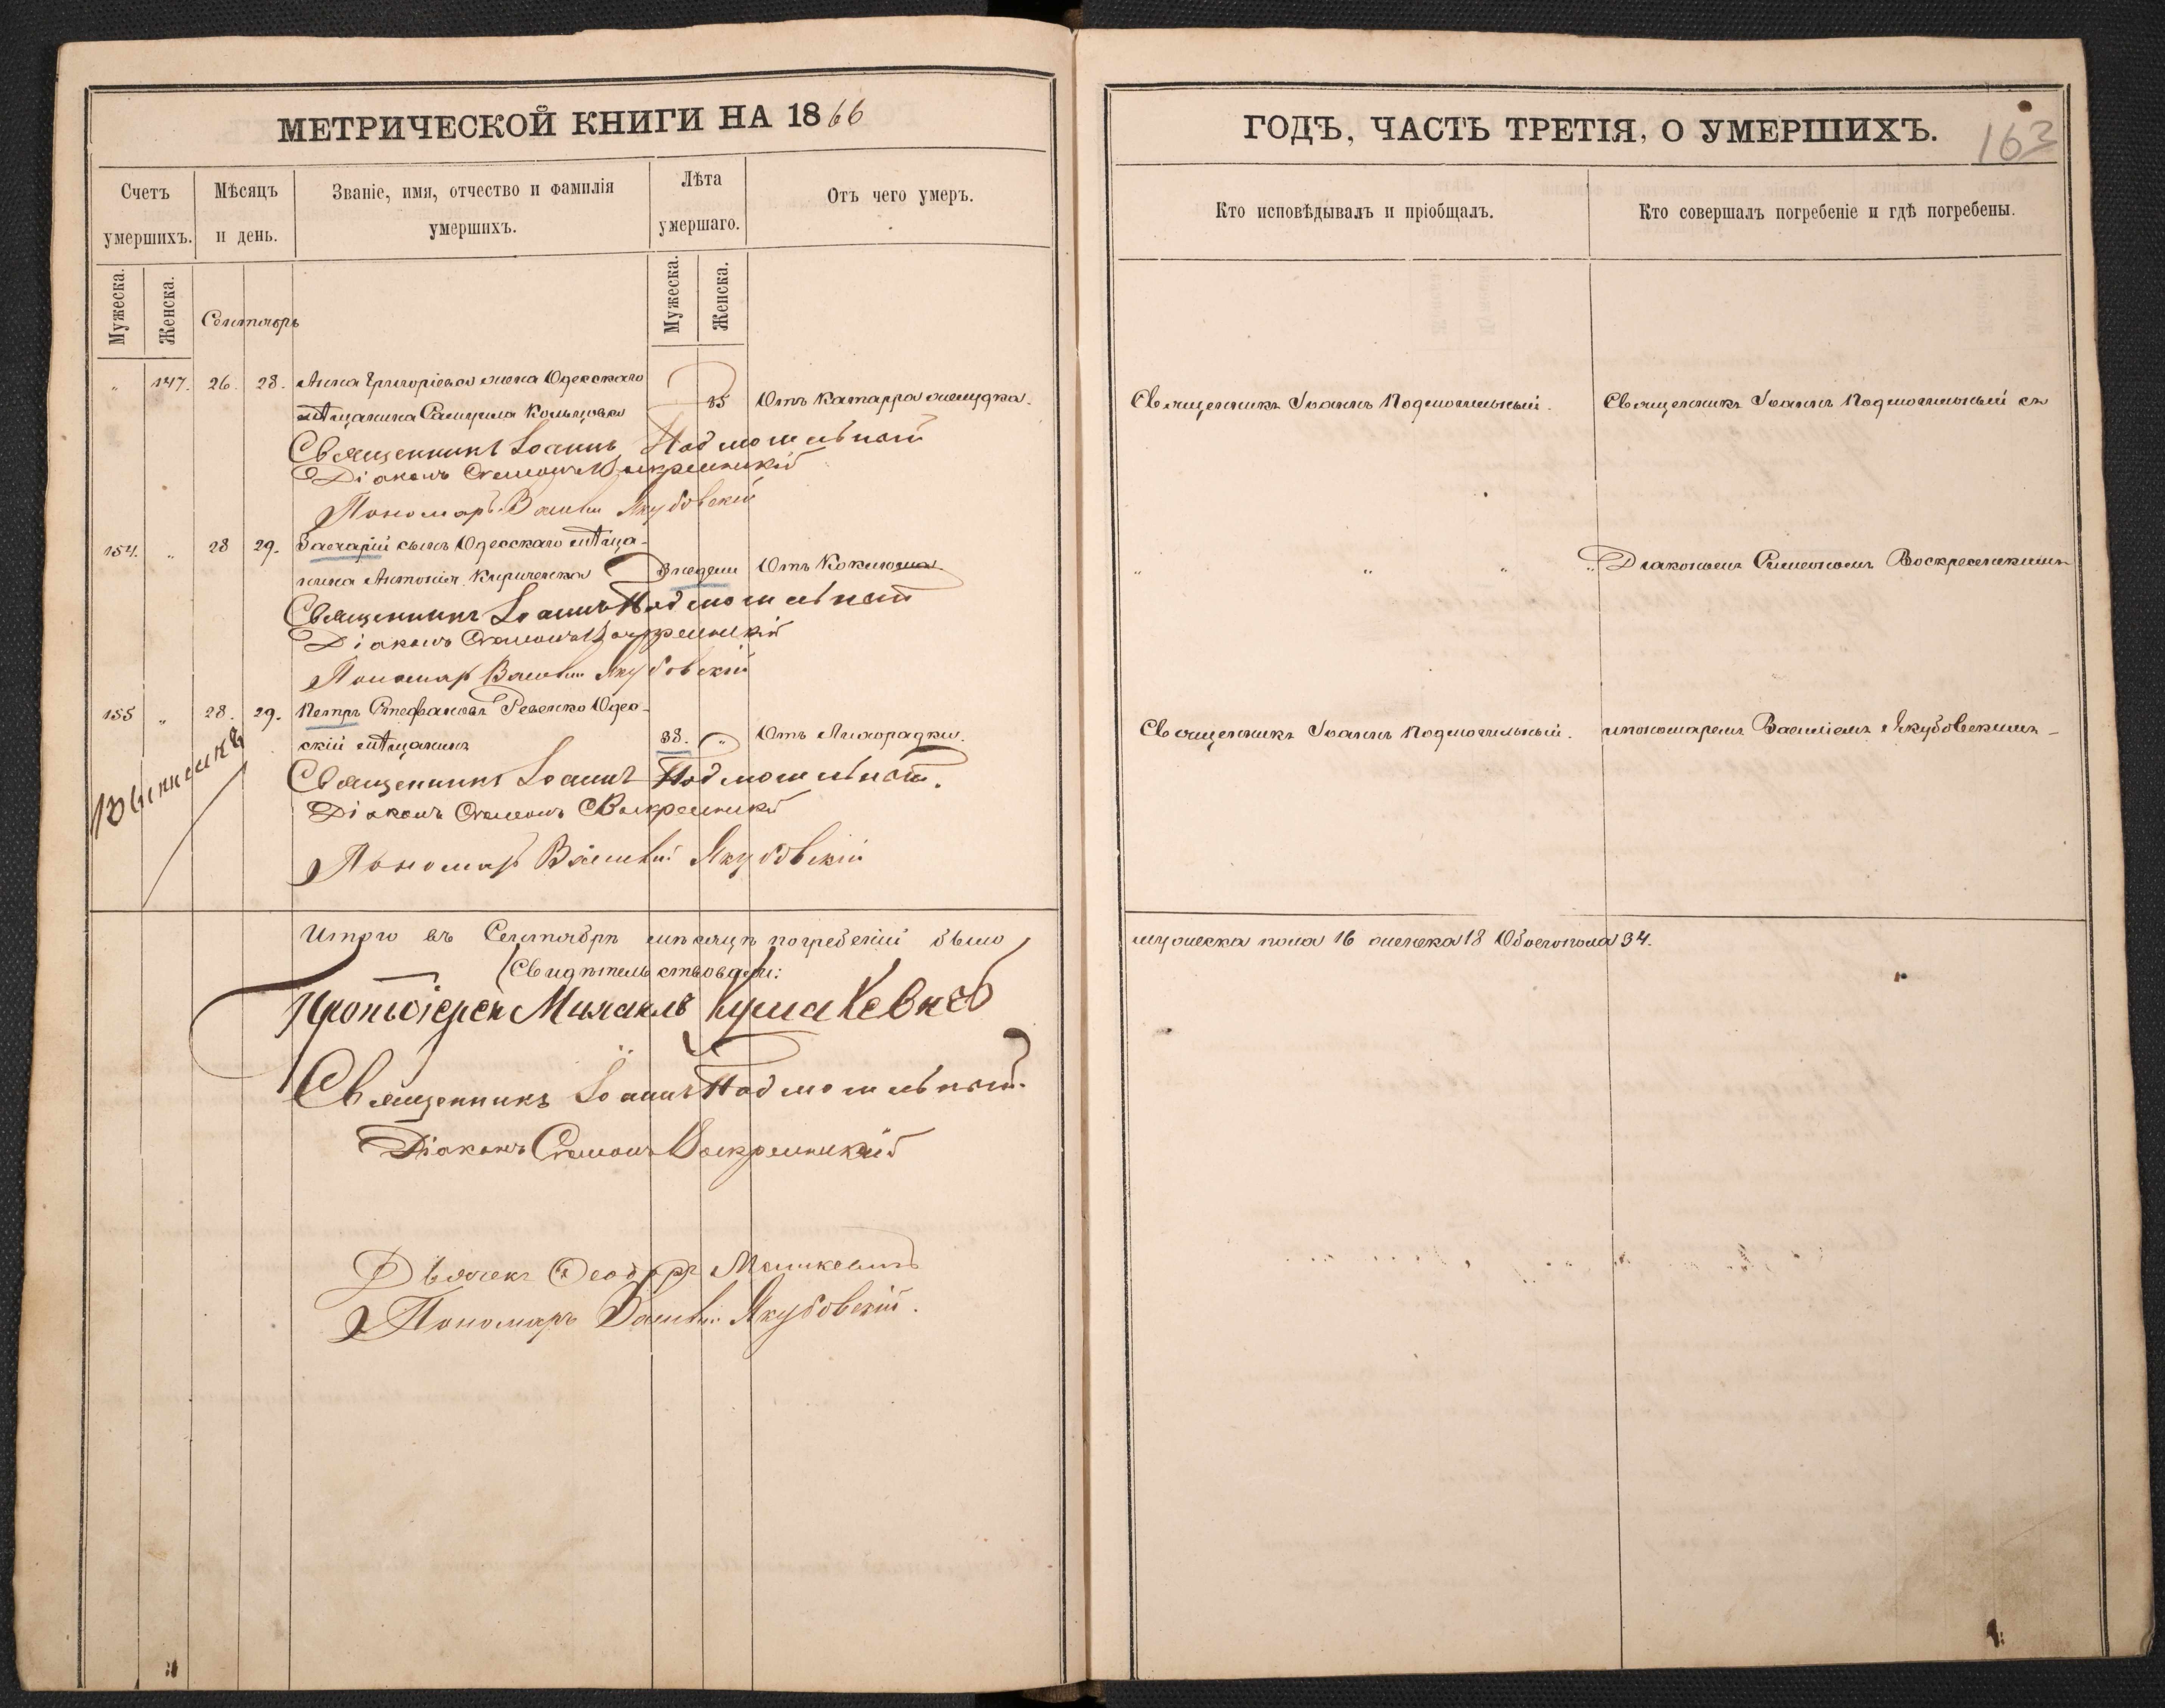 МЕТРИЧЕСКОЙ КНИГИ НА 1866
ГОДЪ, ЧАСТЬ ТРЕТІЯ, О УМЕРШИХЪ.
163
Счетъ умершихъ.
Мѣсяцъ и день.
Званіе, имя, отчество и фамилія умершихъ.
Лѣта умершаго.
Отъ чего умеръ.
Кто исповѣдывалъ и пріобщалъ.
Кто совершалъ погребеніе и гдѣ погребены.
Мужеска.
Женска.
Мужеска.
Женска.
Сентябрь
" 147. 26. 28. Анна Григоріева жена Одесскаго
мѣщанина 35 Отъ катарра желудка.
Священникъ Іоаннъ Подмогильный.
Священникъ Іоаннъ Подмогильный съ
Священникъ Іоаннъ Подмогильный
Діаконъ Симеонъ Воскресенскій
Пономарь Василій Якубовскій
154. " 28 29. Захарій сынъ Одесскаго мѣща-
нина Антонія Кириченка 3 недели Отъ Коклюша
" " " "
Діакономъ Симеономъ Воскресенскимъ
Священникъ Іоаннъ Подмогильный
Діаконъ Симеонъ Воскресенскій
Пономарь Василій Якубовскій
155 " 28. 29. Петръ Стефановъ Ревенко Одес-
скій мѣщанинъ 38. " Отъ Лихорадки.
Священникъ Іоаннъ Подмогильный.
и пономаремъ Василіемъ Якубовскимъ
Священникъ Іоаннъ Подмогильный.
Діаконъ Симеонъ Воскресенскій
Пономарь Василій Якубовскій
Итого въ Сентябрѣ мѣсяцѣ погребеній было
мужеска пола 16 женска 18 Обоего пола 34.
Свидѣтельствовали:
Протоіерей Михаилъ
Священникъ Іоаннъ Подмогильный.
Діаконъ Симеонъ Воскресенскій
Дьячекъ Ѳеодоръ
Пономарь Василій Якубовскій.